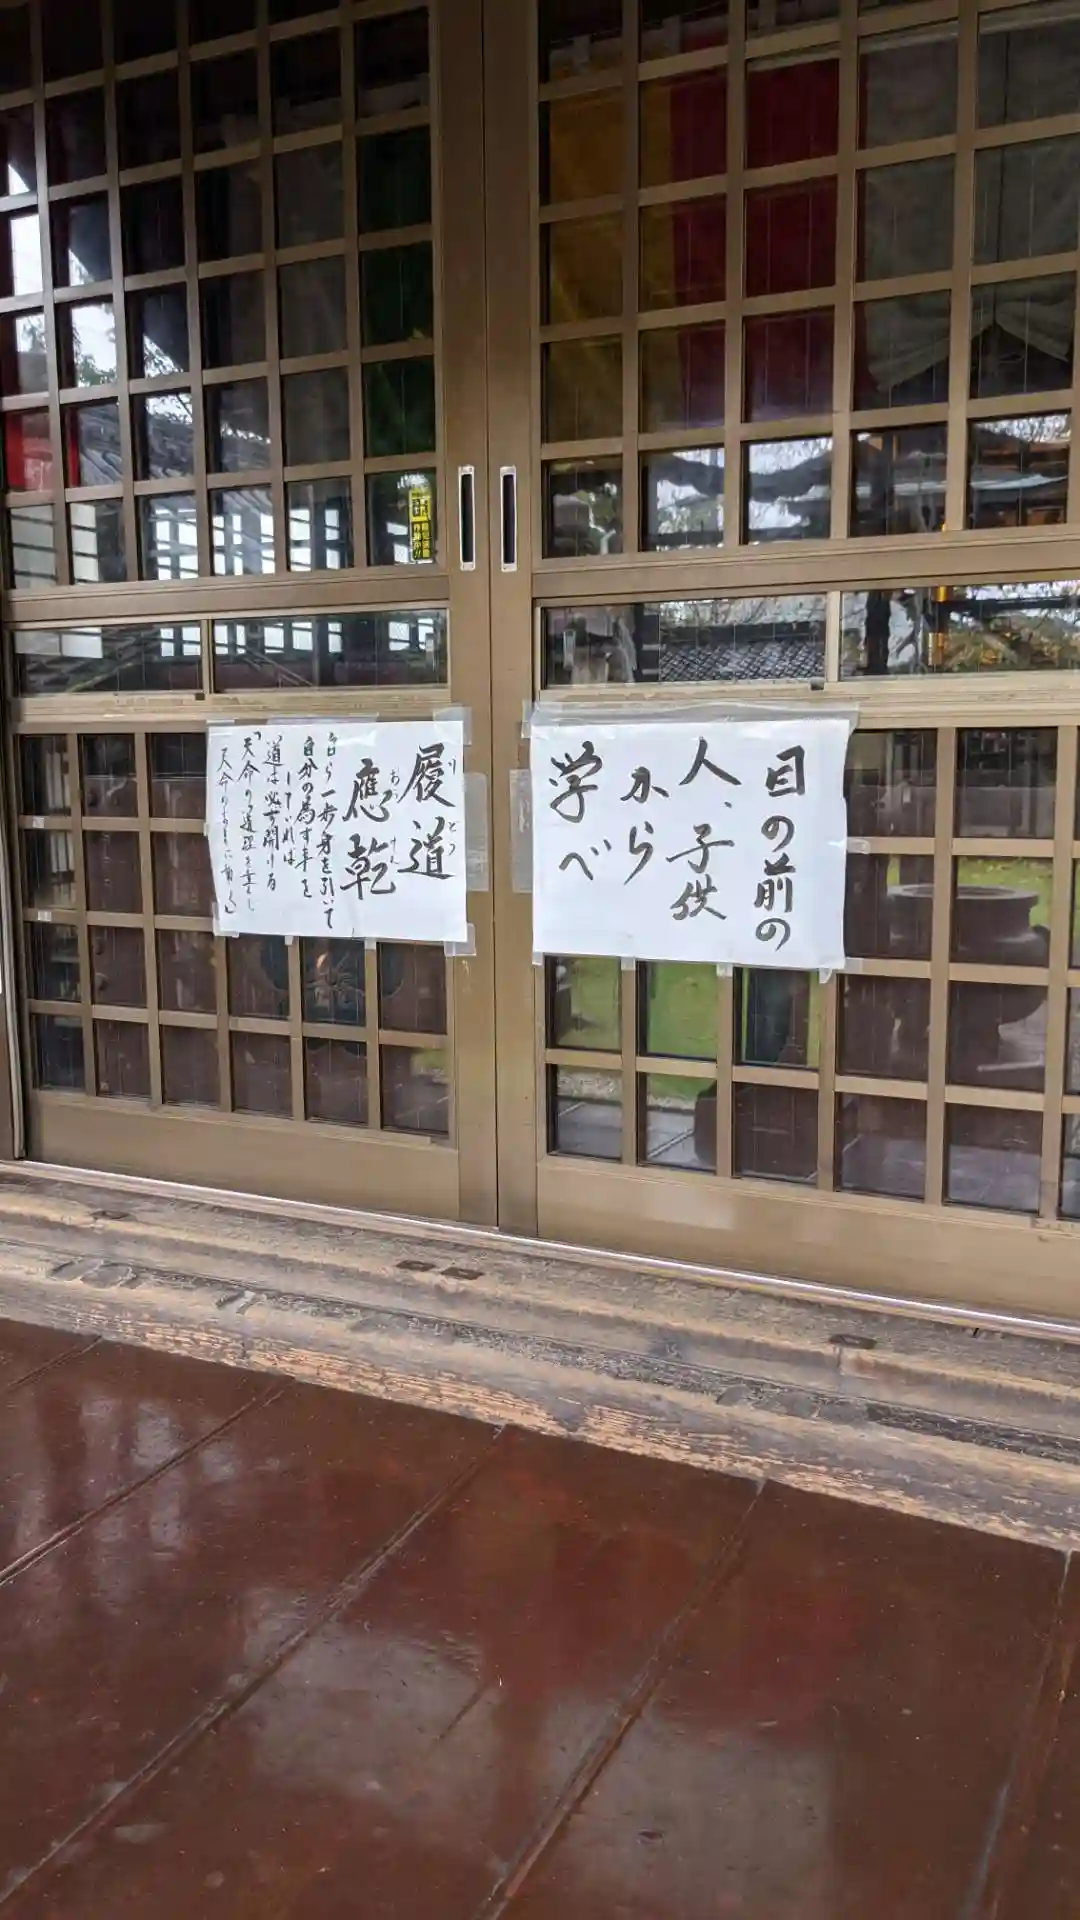 目の前の
人、子供
から
学べ
履道
りどう
應乾
おうけん
自ら一歩身を引いて
自分の為す事を
していれば
道は必ず開ける
「天命の道理を
天命の